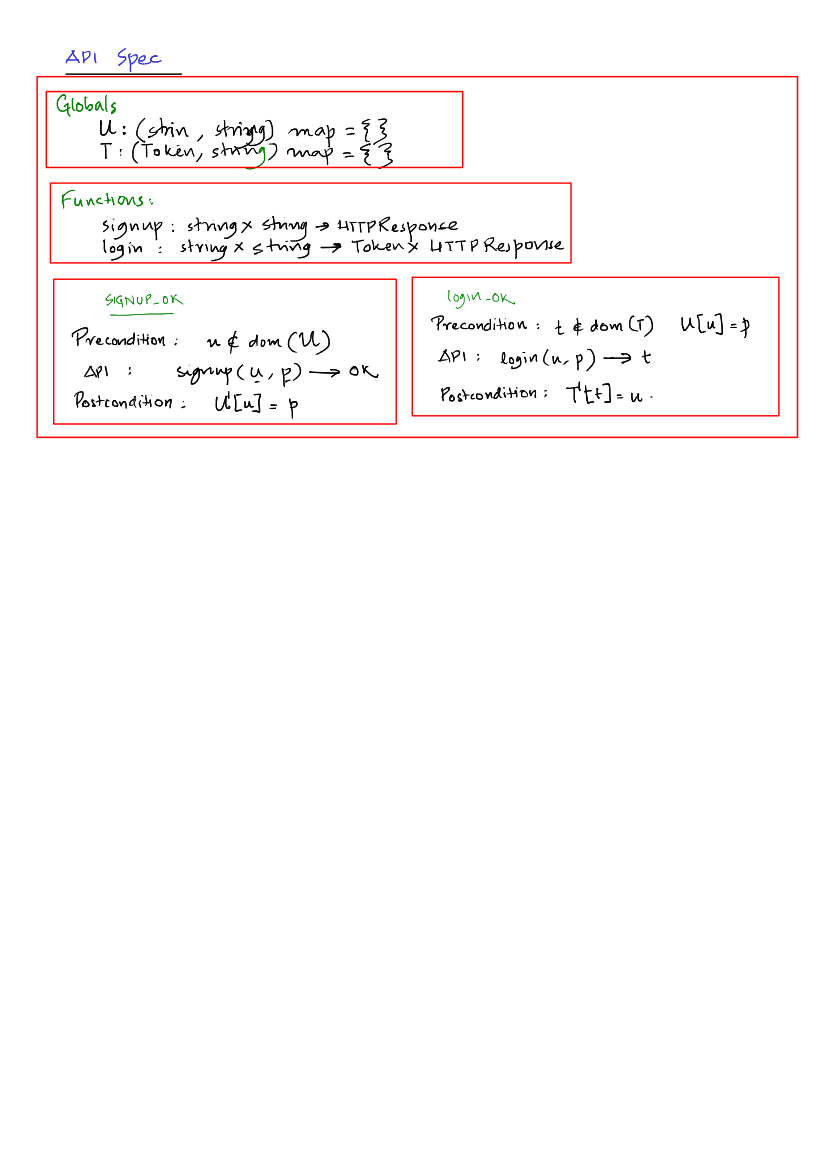 API Spec
Globals
U : (strin , string) map = { }
T : (Token, string) map = { }
Functions :
signup : string × string → HTTPResponse
login : string × string → Token × HTTPResponse
SIGNUP_OK
Precondition : u ∉ dom (U)
API : signup(u, p) → OK
Postcondition : U'[u] = p
login_OK
Precondition : t ∉ dom (T) U[u] = p
API : login(u, p) → t
Postcondition : T'[t] = u .